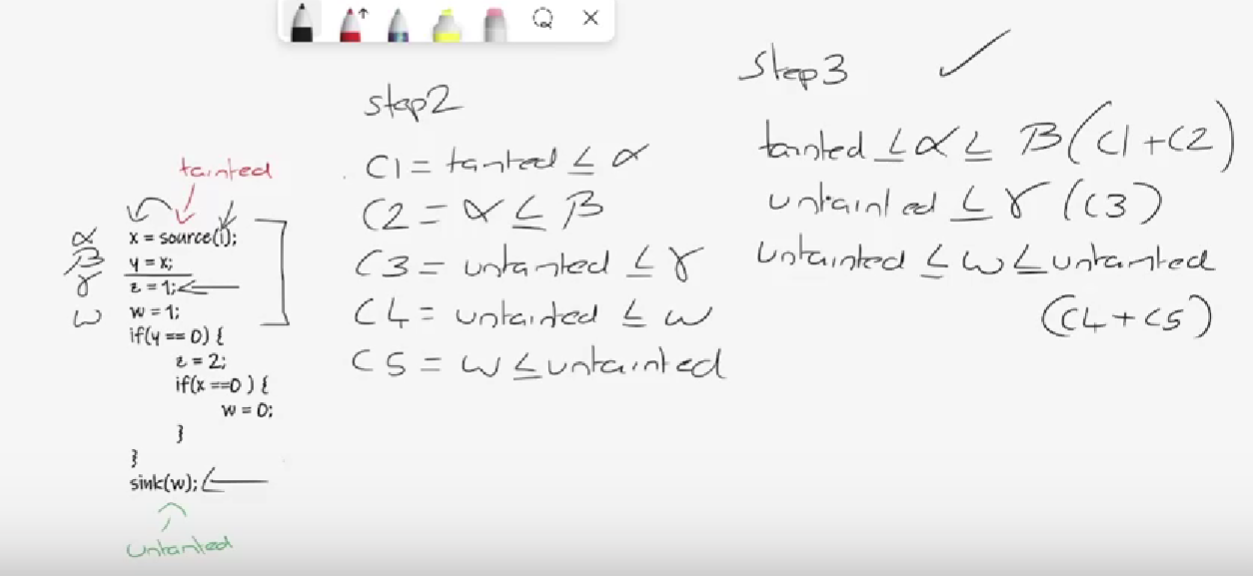 tainted
α x = source(1);
β y = x;
γ z = 1;
ω w = 1;
if(y == 0) {
z = 2;
if(x ==0 ) {
w = 0;
}
}
sink(w);
untanted
step2
C1 = tanted ≤ α
C2 = α ≤ β
C3 = untanted ≤ γ
C4 = untainted ≤ ω
C5 = ω ≤ untainted
Step3 ✓
tainted ≤ α ≤ β (C1+C2)
untainted ≤ γ (C3)
untainted ≤ ω ≤ untanted
(C4+C5)